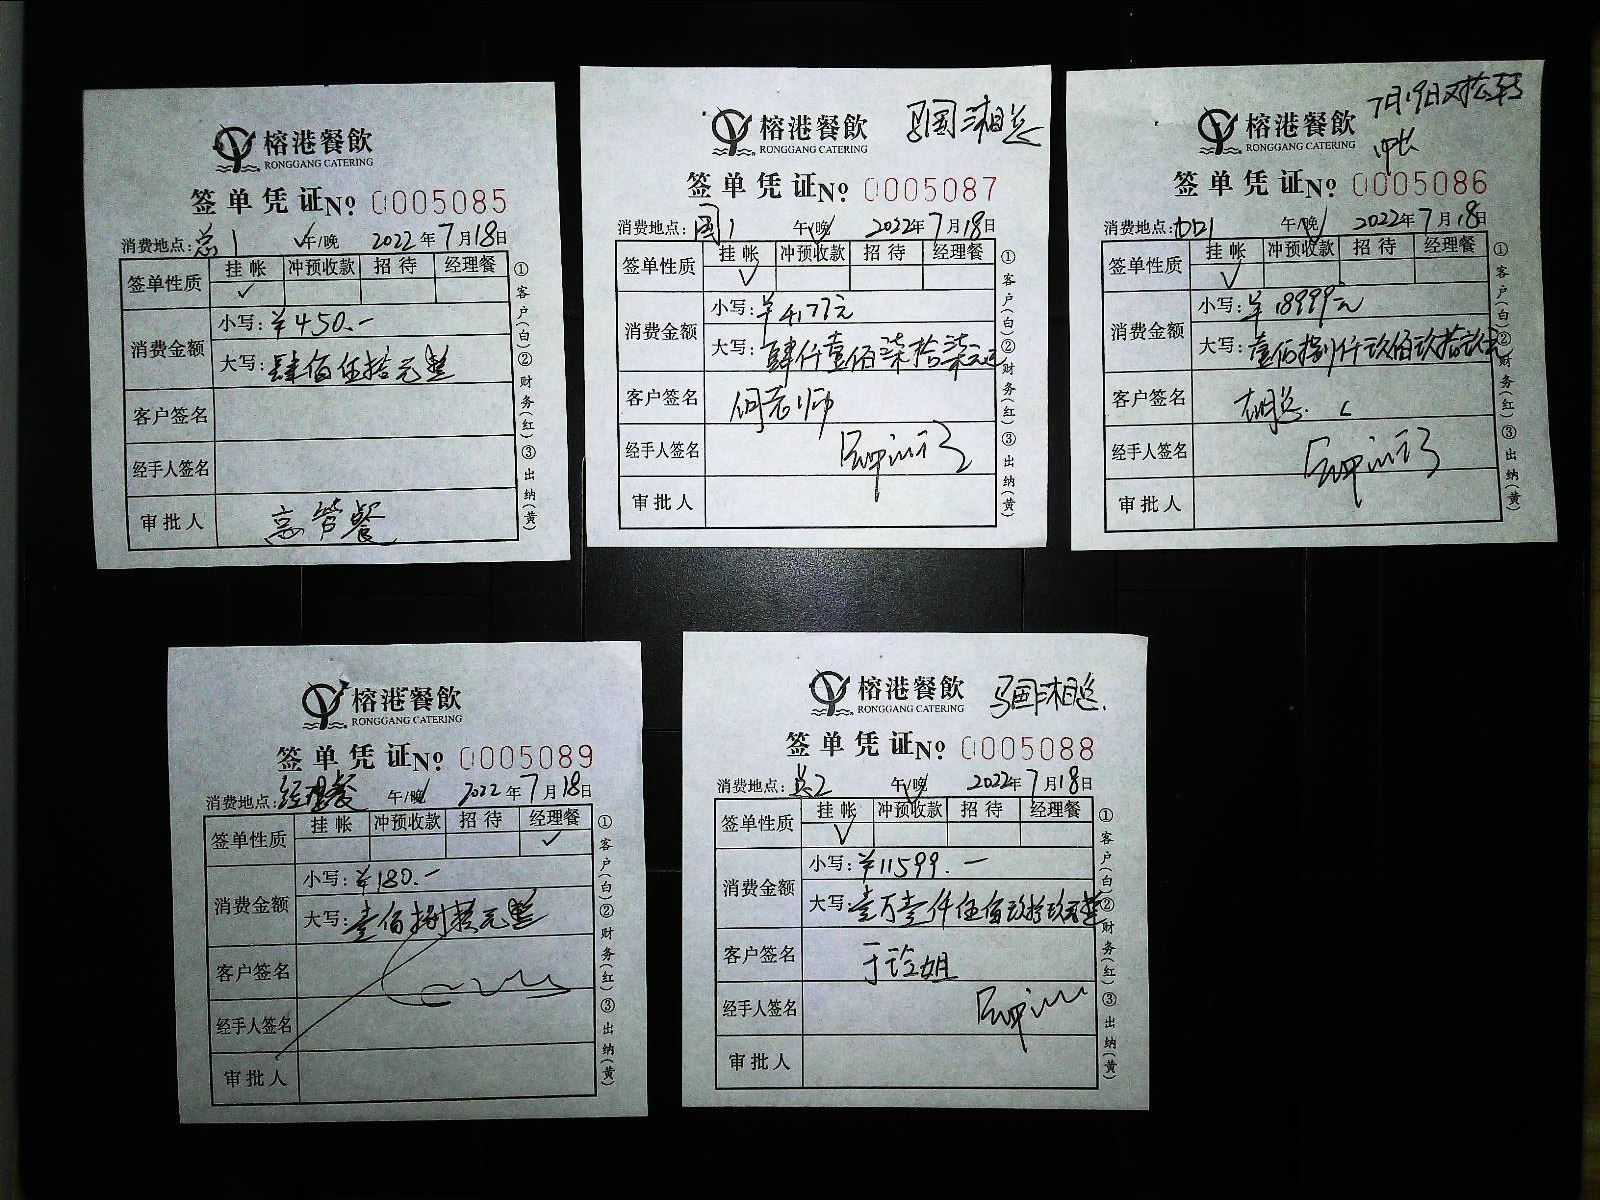 榕港餐飲
RONGGANG CATERING
签单凭证No 0005085
消费地点: 总1 午/晚 2022年7月18日
签单性质 挂帐 冲预收款 招待 经理餐
消费金额
小写: ¥450.-
大写: 肆佰伍拾元整
客户签名
经手人签名
审批人 高管餐
①客户(白)②财务(红)③出纳(黄)
榕港餐飲
RONGGANG CATERING
签单凭证No 0005087
消费地点: 国1 午/晚 2022年7月18日
签单性质 挂帐 冲预收款 招待 经理餐
消费金额
小写: ¥4177元
大写: 肆仟壹佰柒拾柒元
客户签名 何老师
经手人签名
审批人
①客户(白)②财务(红)③出纳(黄)
7月19日对公转
榕港餐飲
RONGGANG CATERING
签单凭证No 0005086
消费地点: 午/晚 2022年7月18日
签单性质 挂帐 冲预收款 招待 经理餐
消费金额
小写: ¥18999元
大写: 捌仟玖佰玖拾玖元
客户签名 胡总.
经手人签名
审批人
①客户(白)②财务(红)③出纳(黄)
榕港餐飲
RONGGANG CATERING
签单凭证No 0005089
消费地点: 经理餐 午/晚 2022年7月18日
签单性质 挂帐 冲预收款 招待 经理餐
消费金额
小写: ¥180.-
大写: 壹佰捌拾元整
客户签名
经手人签名
审批人
①客户(白)②财务(红)③出纳(黄)
榕港餐飲
RONGGANG CATERING
签单凭证No 0005088
消费地点: 总2 午/晚 2022年7月18日
签单性质 挂帐 冲预收款 招待 经理餐
消费金额
小写: ¥11599.-
大写: 壹万壹仟伍佰玖拾玖元整
客户签名 于玲姐
经手人签名
审批人
①客户(白)②财务(红)③出纳(黄)